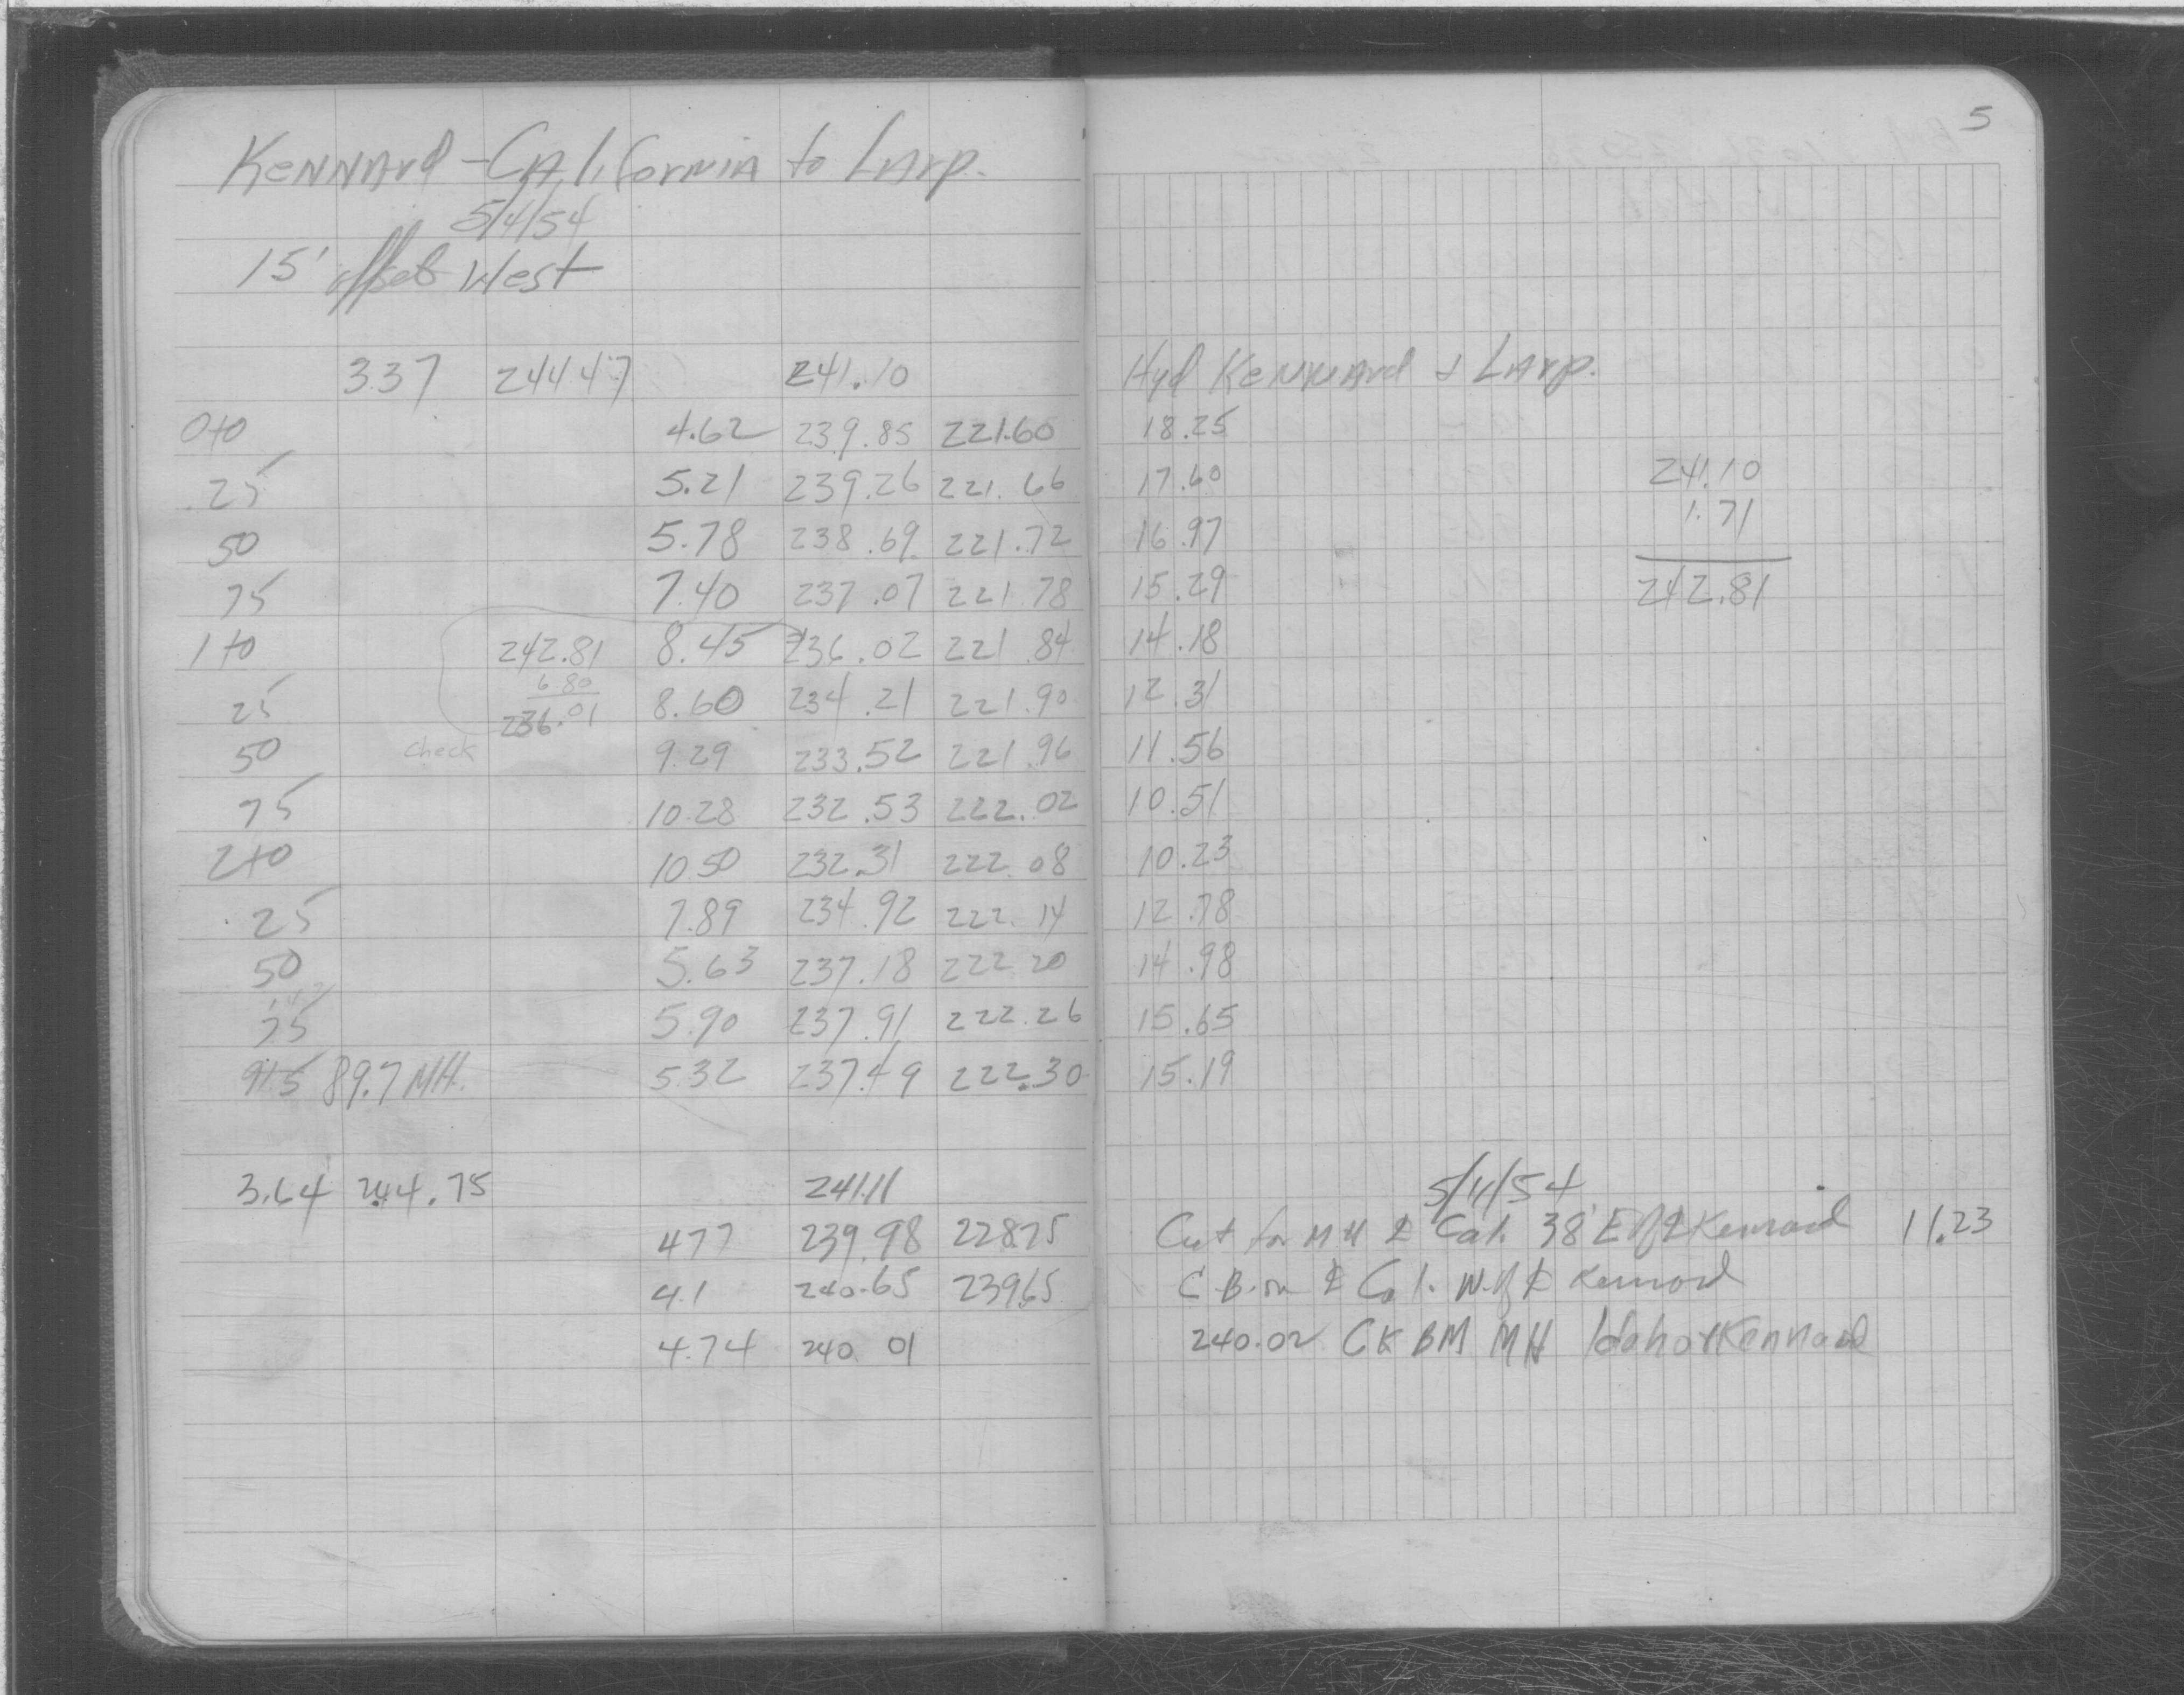 5
Kennard - California to Larp.
5/4/54
15' offset West
3.37 244.47 241.10 Hyd Kennard & Larp.
0+0 4.62 239.85 221.60 18.25
25 5.21 239.26 221.66 17.60 241.10
50 5.78 238.69 221.72 16.97 1.71
75 7.40 237.07 221.78 15.29 242.81
1+0 242.81 8.45 236.02 221.84 14.18
6.80
25 236.01 8.60 234.21 221.90 12.31
50 check 9.29 233.52 221.96 11.56
75 10.28 232.53 222.02 10.51
2+0 10.50 232.31 222.08 10.23
25 7.89 234.92 222.14 12.78
50 5.63 237.18 222.20 14.98
75 5.90 237.91 222.26 15.65
91.5 89.7 MH. 5.32 237.49 222.30 15.19
5/11/54
3.64 244.75 241.11
4.77 239.98 228.75 Cut for MH ℄ Cal. 38' E of ℄ Kennard 11.23
4.1 240.65 239.65 C.B. on ℄ Cal. W. of ℄ Kennard
4.74 240.01 240.02 CK BM MH Idaho & Kennard